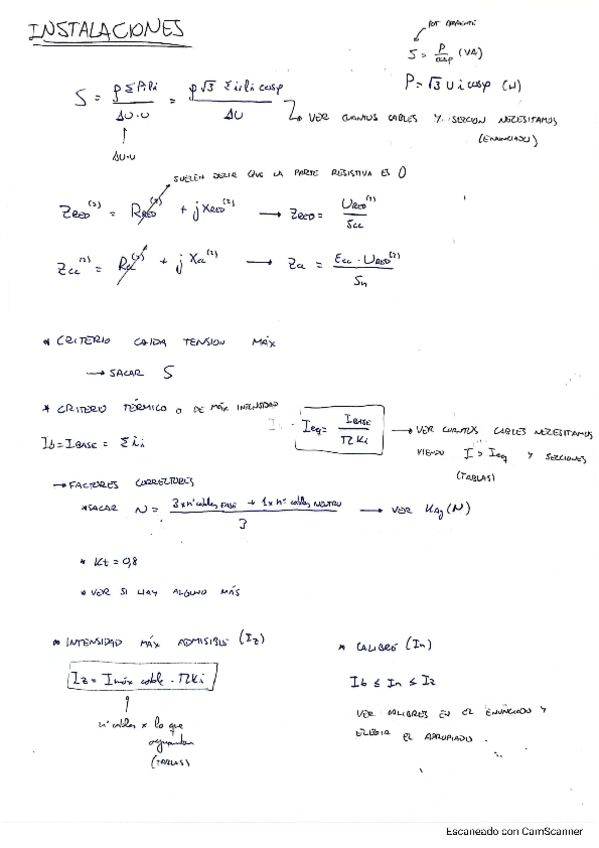 INSTALACIONES
POT APARENTE
S = P / cosφ (VA)
P = √3 U i cosφ (W)
S = ρ Σ Pi li / ΔU·U = ρ √3 Σ ii li cosφ / ΔU
VER CUANTOS CABLES Y SECCION NECESITAMOS
(ENUNCIADO)
ΔU·U
SUELEN DECIR QUE LA PARTE RESISTIVA ES 0
= + j → ZRED = / Scc
= + j → = / Sn
* CRITERIO CAIDA TENSION MÁX
→ SACAR S
* CRITERIO TÉRMICO O DE MÁX INTENSIDAD
Ieq = IBASE / πKi
→ VER CUANTOS CABLES NECESITAMOS
Ib = IBASE = Σ ii
VIENDO I > Ieq Y SECCIONES
(TABLAS)
→ FACTORES CORRECTORES
*SACAR N = 3 x nº cables FASE + 1 x nº cables NEUTRO / 3 → VER KAg (N)
* Kt = 0,8
* VER SI HAY ALGUNO MÁS
* INTENSIDAD MÁX ADMISIBLE (Iz)
Iz = Imáx cable · πKi
nº cables x lo que
aguantan
(TABLAS)
* CALIBRE (In)
Ib ≤ In ≤ Iz
VER CALIBRES EN EL ENUNCIADO Y
ELEGIR EL APROPIADO.
Escaneado con CamScanner